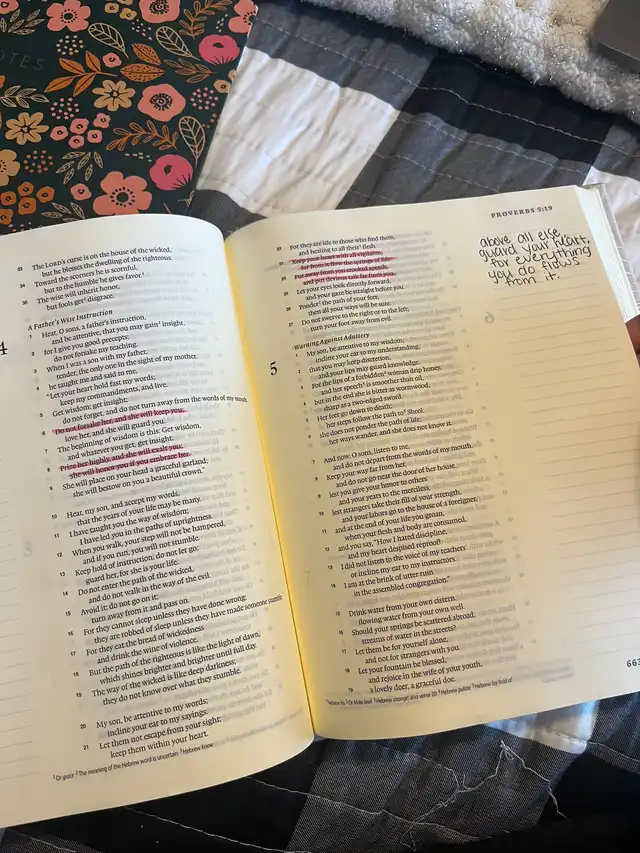 NOTES
33 The LORD's curse is on the house of the wicked,
but he blesses the dwelling of the righteous.
34 Toward the scorners he is scornful,
but to the humble he gives favor.
35 The wise will inherit honor,
but fools get disgrace.
A Father's Wise Instruction
4
1 Hear, O sons, a father's instruction,
and be attentive, that you may gain insight,
2 for I give you good precepts;
do not forsake my teaching.
3 When I was a son with my father,
tender, the only one in the sight of my mother,
4 he taught me and said to me,
"Let your heart hold fast my words;
keep my commandments, and live.
5 Get wisdom; get insight;
do not forget, and do not turn away from the words of my mouth.
6 Do not forsake her, and she will keep you;
love her, and she will guard you.
7 The beginning of wisdom is this: Get wisdom,
and whatever you get, get insight.
8 Prize her highly, and she will exalt you;
she will honor you if you embrace her.
9 She will place on your head a graceful garland;
she will bestow on you a beautiful crown."
10 Hear, my son, and accept my words,
that the years of your life may be many.
11 I have taught you the way of wisdom;
I have led you in the paths of uprightness.
12 When you walk, your step will not be hampered,
and if you run, you will not stumble.
13 Keep hold of instruction; do not let go;
guard her, for she is your life.
14 Do not enter the path of the wicked,
and do not walk in the way of the evil.
15 Avoid it; do not go on it;
turn away from it and pass on.
16 For they cannot sleep unless they have done wrong;
they are robbed of sleep unless they have made someone stumble.
17 For they eat the bread of wickedness
and drink the wine of violence.
18 But the path of the righteous is like the light of dawn,
which shines brighter and brighter until full day.
19 The way of the wicked is like deep darkness;
they do not know over what they stumble.
20 My son, be attentive to my words;
incline your ear to my sayings.
21 Let them not escape from your sight;
keep them within your heart.
1 Or grace 2 The meaning of the Hebrew word is uncertain 3 Hebrew know
PROVERBS 5:19
22 For they are life to those who find them,
and healing to all their flesh.
23 Keep your heart with all vigilance,
for from it flow the springs of life.
24 Put away from you crooked speech,
and put devious talk far from you.
25 Let your eyes look directly forward,
and your gaze be straight before you.
26 Ponder the path of your feet;
then all your ways will be sure.
27 Do not swerve to the right or to the left;
turn your foot away from evil.
Warning Against Adultery
5
1 My son, be attentive to my wisdom;
incline your ear to my understanding,
2 that you may keep discretion,
and your lips may guard knowledge.
3 For the lips of a forbidden woman drip honey,
and her speech is smoother than oil,
4 but in the end she is bitter as wormwood,
sharp as a two-edged sword.
5 Her feet go down to death;
her steps follow the path to Sheol;
6 she does not ponder the path of life;
her ways wander, and she does not know it.
7 And now, O sons, listen to me,
and do not depart from the words of my mouth.
8 Keep your way far from her,
and do not go near the door of her house,
9 lest you give your honor to others
and your years to the merciless,
10 lest strangers take their fill of your strength,
and your labors go to the house of a foreigner,
11 and at the end of your life you groan,
when your flesh and body are consumed,
12 and you say, "How I hated discipline,
and my heart despised reproof!
13 I did not listen to the voice of my teachers
or incline my ear to my instructors.
14 I am at the brink of utter ruin
in the assembled congregation."
15 Drink water from your own cistern,
flowing water from your own well.
16 Should your springs be scattered abroad,
streams of water in the streets?
17 Let them be for yourself alone,
and not for strangers with you.
18 Let your fountain be blessed,
and rejoice in the wife of your youth,
19 a lovely deer, a graceful doe.
above all else,
guard your heart,
for everything
you do flows
from it.
663